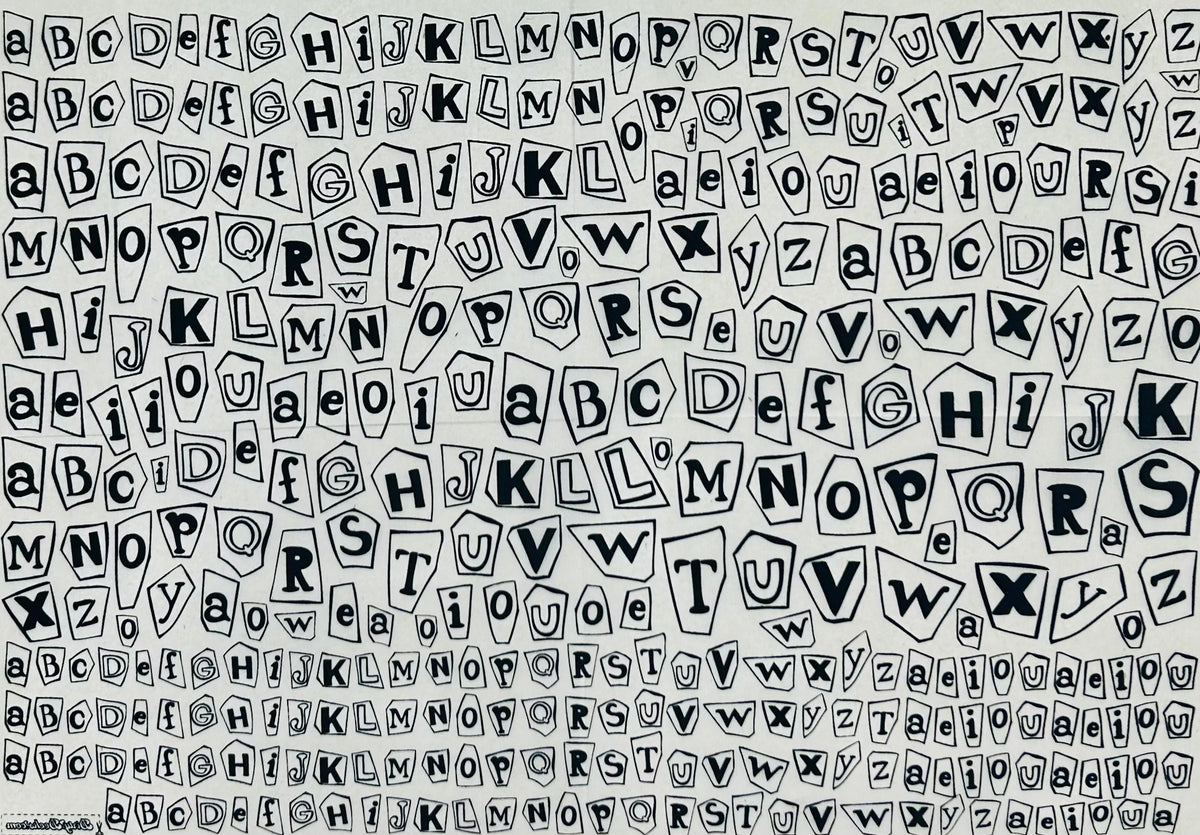 a B c D e f G H i J K L M N O P v Q R S T o U V W X y Z
a B c D e f G H i J K L M N O P i Q R S U i T W P V X y Z w
a B c D e f G H i J K L a e i O U a e i O U R S i
M N O P Q R S w T U V o W X y Z a B c D e f G
H i J K L M N O P Q R S e U V o W X y Z O
a e i i O U a e O i U a B c D e f G H i J K
a B c i D e f G H J K L L o M N O P Q R S
M N O P Q R S T U V W T U V e W X a y Z
X Z o y a o w e a o i O U o e w a o
a B c D e f G H i J K L M N O P Q R S T U V W X y Z a e i O U a e i O U
a B c D e f G H i J K L M N O P Q R S U V W X y Z T a e i O U a e i O U
a B c D e f G H i J K L M N O P Q R S T U V W X y Z a e i O U a e i O U
a B c D e f G H i J K L M N O P Q R S T U V W X y Z a e i O U a